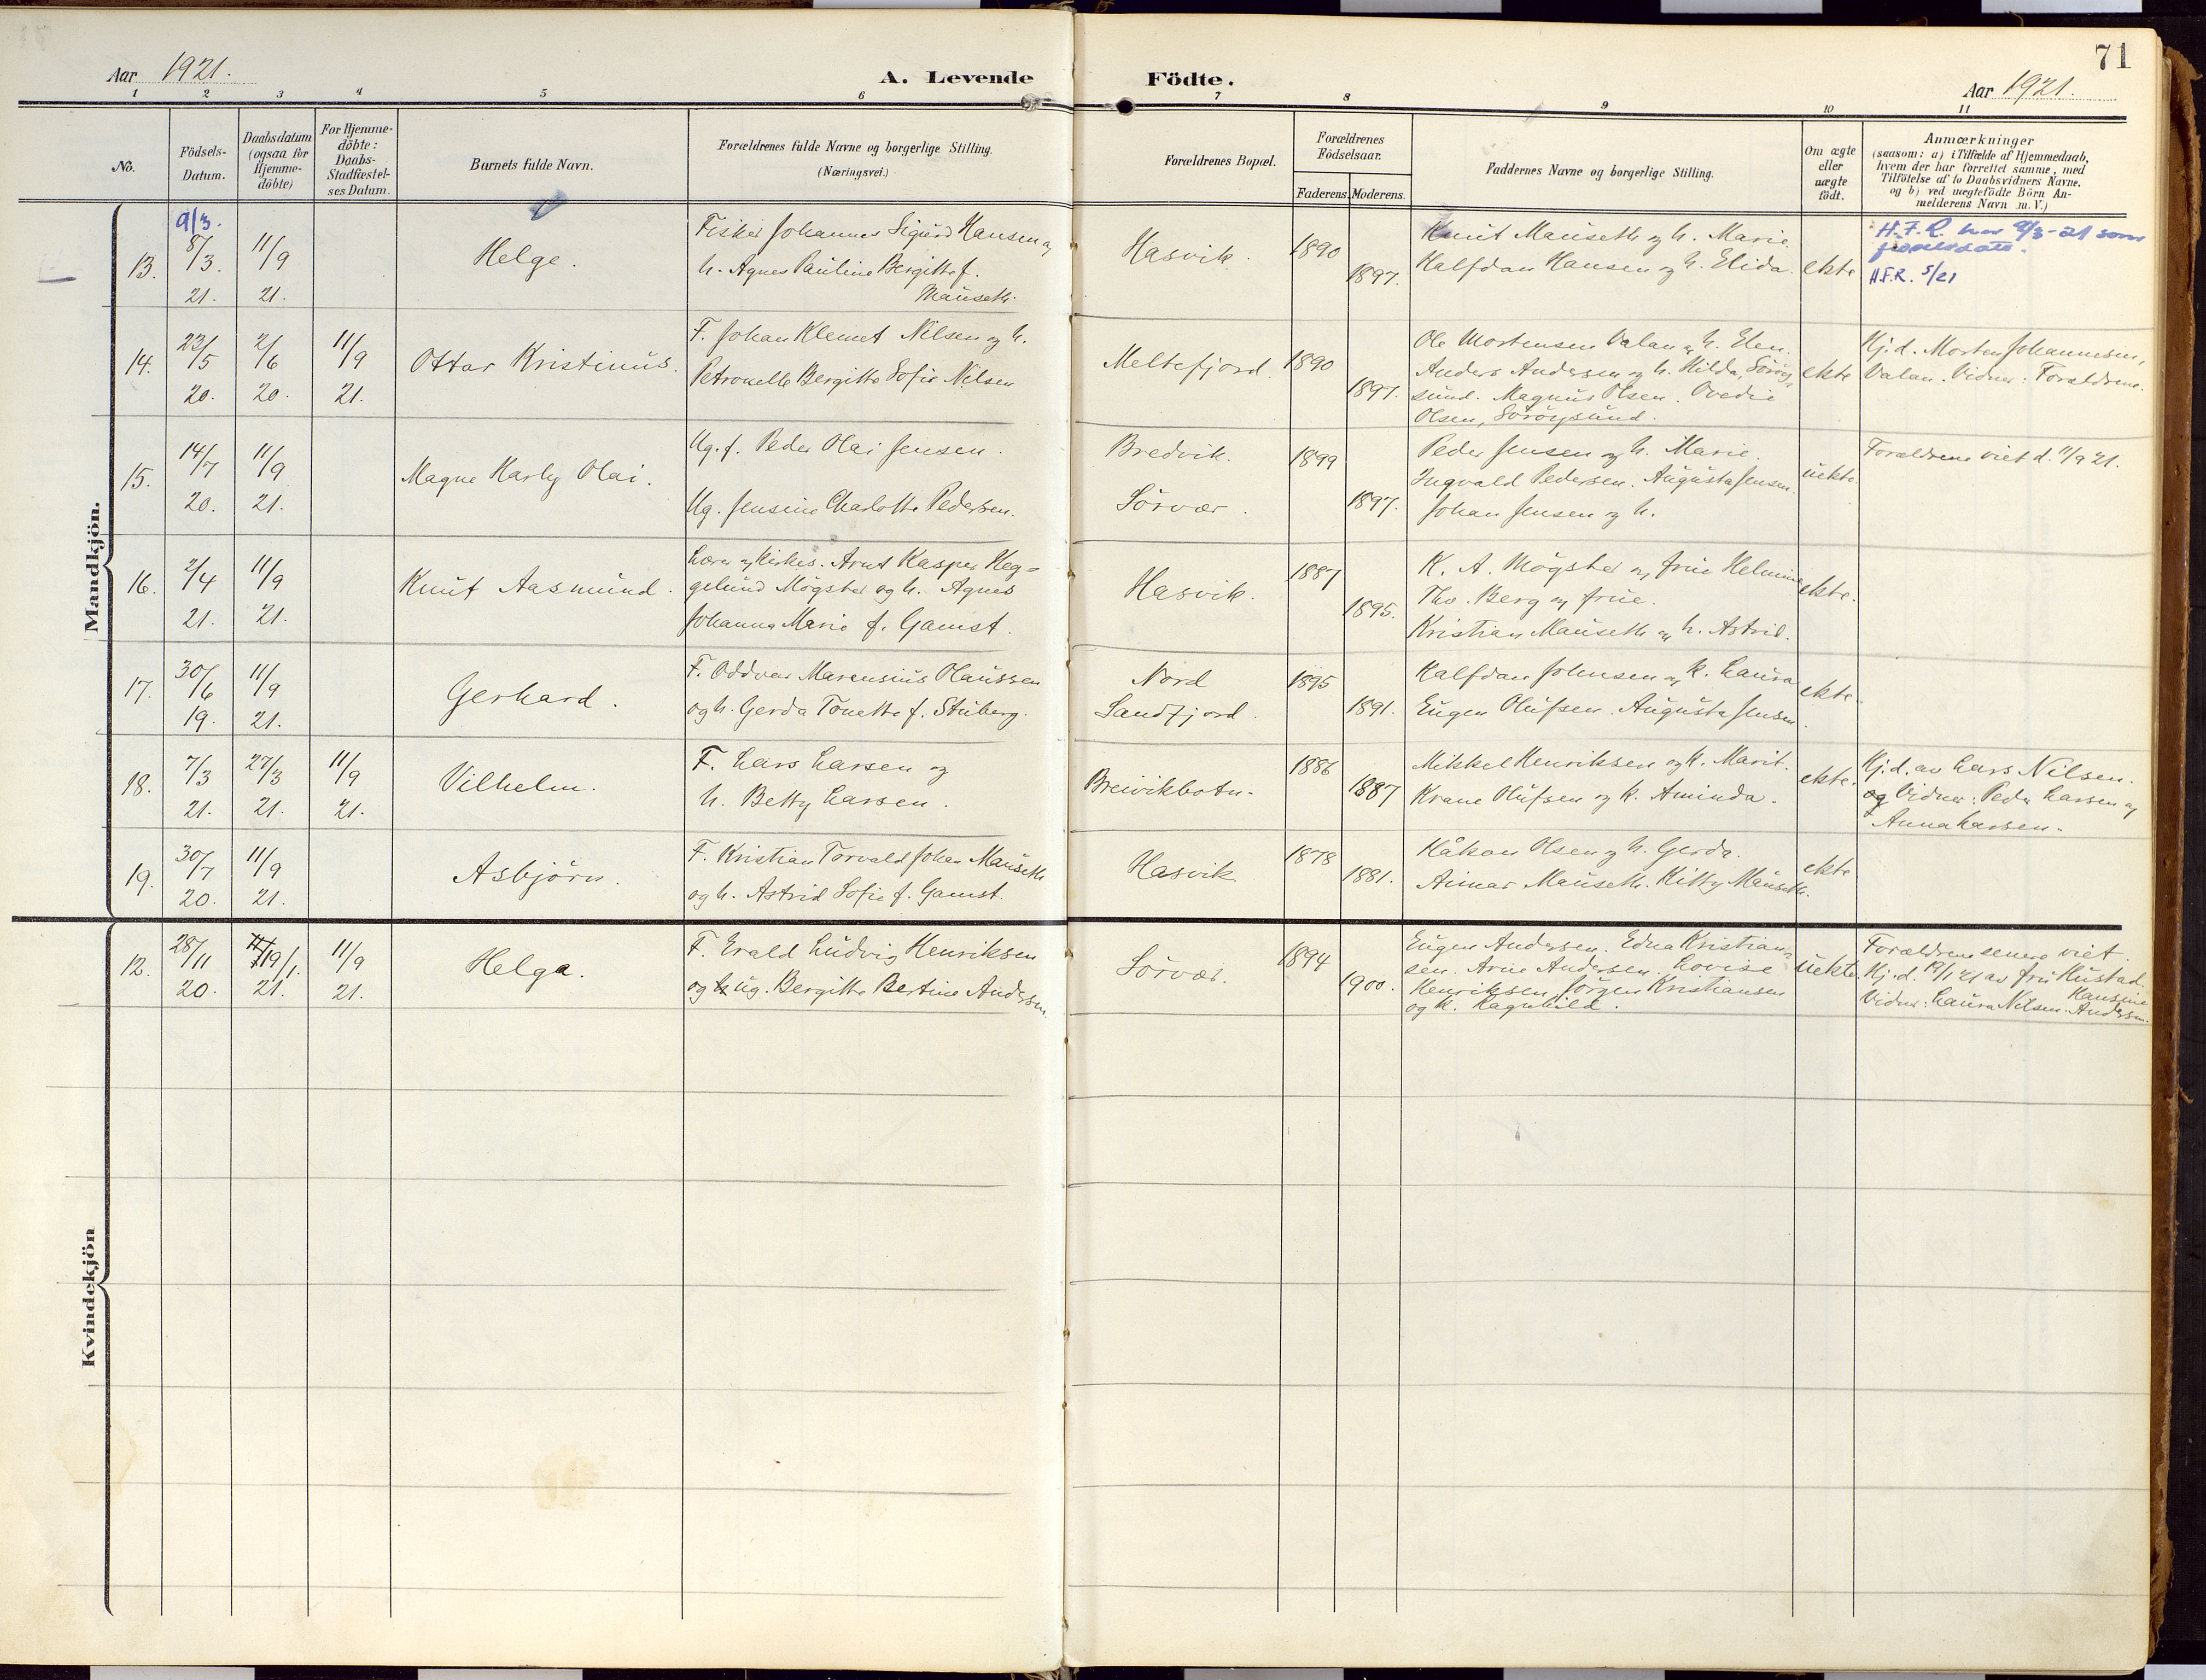 71
Aar 1921.
A. Levende Födte.
Aar 1921.
1 2 3 4 5 6 7 8 9 10 11
No.
Födsels-
Datum.
Daabsdatum
(ogsaa for
Hjemme-
döbte)
For Hjemme-
döbte:
Daabs-
Stadfæstel-
ses Datum.
Barnets fulde Navn.
Forældrenes fulde Navne og borgerlige Stilling.
(Næringsvei.)
Forældrenes Bopæl.
Forældrenes
Födselsaar.
Faderens. Moderens.
Faddernes Navne og borgerlige Stilling.
Om ægte
eller
uægte
födt.
Anmærkninger
(saasom: a) i Tilfælde af Hjemmedaab,
hvem der har forrettet samme, med
Tilföielse af to Daabsvidners Navne.
og b) ved uægtefödte Börn An-
melderens Navn m.V.)
Mandkjön.
13.
9/3.
8/3.
21.
11/9
21.
Helge.
Fisker Johannes Sigurd Hansen og
h. Agnes Pauline Bergitte f.
Mauseth.
Hasvik.
1890
1897.
Knut Mauseth og h. Marie.
Halfdan Hansen og h. Elida.
ekte
H.F.R. har 9/3-21 som
fødselsdato.
H.F.R. 5/21
14.
23/5
20.
2/6
20.
11/9
21.
Ottar Kristinus.
F. Johan Klemet Nilsen og h.
Petronelle Bergitte Sofie Nilsen
Meltefjord.
1890
1897.
Ole Mortensen Valan og h. Elen.
Anders Andersen og h. Hilda, Sörøy-
sund. Magnus Olsen. Ovedie
Olsen, Sörøysund.
ekte
Hj. d. Morten Johannesen,
Valan. Vidner: Foreldrene.
15.
14/7
20.
11/9
21.
Magne Harly Olai.
Ug. f. Peder Olai Jensen.
Ug. Jensine Charlotte Pedersen.
Bredvik.
Sörvær.
1899
1897.
Peder Jensen og h. Marie.
Ingvald Pedersen. Augusta Jensen.
Johan Jensen og h.
uekte.
Foreldrene viet d. 11/9 21.
16.
2/4
21.
11/9
21.
Knut Aasmund.
Lærer og kirkes. Arnt Kasper Heg=
gelund Mögster og h. Agnes
Johanna Marie f. Gamst.
Hasvik.
1887
1895.
K. A. Mögster og frue Helmine
Tho. Berg og frue.
Kristian Mauseth og h. Astrid.
ekte.
17.
30/6
19.
11/9
21.
Gerhard.
F. Oddvar Marensius Olaussen
og h. Gerda Tonette f. Stuberg.
Nord
Sandfjord.
1895
1891.
Halfdan Johnsen og h. Laura
Eugen Olufsen. Augusta Jensen.
ekte
18.
7/3
21.
27/3
21.
11/9
21.
Vilhelm.
F. Lars Larsen og
h. Betty Larsen.
Breivikbotn.
1886
1887
Mikkel Henriksen og h. Marit.
Krane Olufsen og h. Aminda.
ekte.
Hj. d. av Lars Nilsen.
og Vidner: Peder Larsen og
Anna Larsen.
19.
30/7
20.
11/9
21.
Asbjörn.
F. Kristian Torvald Johan Mauseth
og h. Astrid Sofie f. Gamst.
Hasvik
1878
1881.
Håkon Olsen og h. Gerda.
Aimar Mauseth. Kitty Mauseth.
ekte
Kvindekjön
12.
28/11
20.
19/1.
21.
11/9
21.
Helga.
F. Erald Ludvig Henriksen
og ug. Bergitte Bertine Andersen.
Sörvær.
1894
1900.
Eugen Andersen. Edna Kristian-
sen. Arne Andersen. Lovise
Henriksen. Jörgen Kristiansen
og h. Ragnhild.
uekte.
Foreldrene senere viet.
Hj. d. 19/1 21 av fru Hustad.
Vidner: Laura Nilsen. Hansine
Andersen.